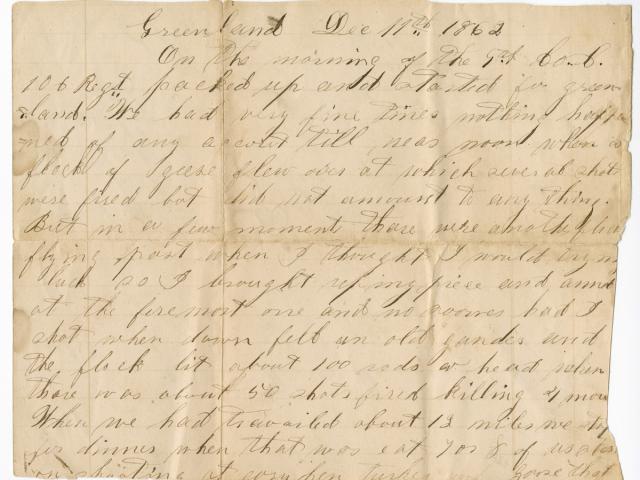 Greenland Dec 11th 1862
On the morning of the 9th Co. C.
106 Regt packed up and started for green
land. We had very fine times nothing happe
ned of any account till near noon when a
flock of geese flew over at which several shot
were fired but did not amount to any thing.
But in a few moments thare were another
flying past when I thought I would try my
luck so I brought up my piece and aimd
at the fore most one and no sooner had I
shot when down fell an old gander and
the flock lit about 100 rods a head when
thare was about 50 shots fired killing 4 more
When we had travailed about 13 miles we
for dinner when that was eat 7 or 8 of us
on shooting at turkey goose that